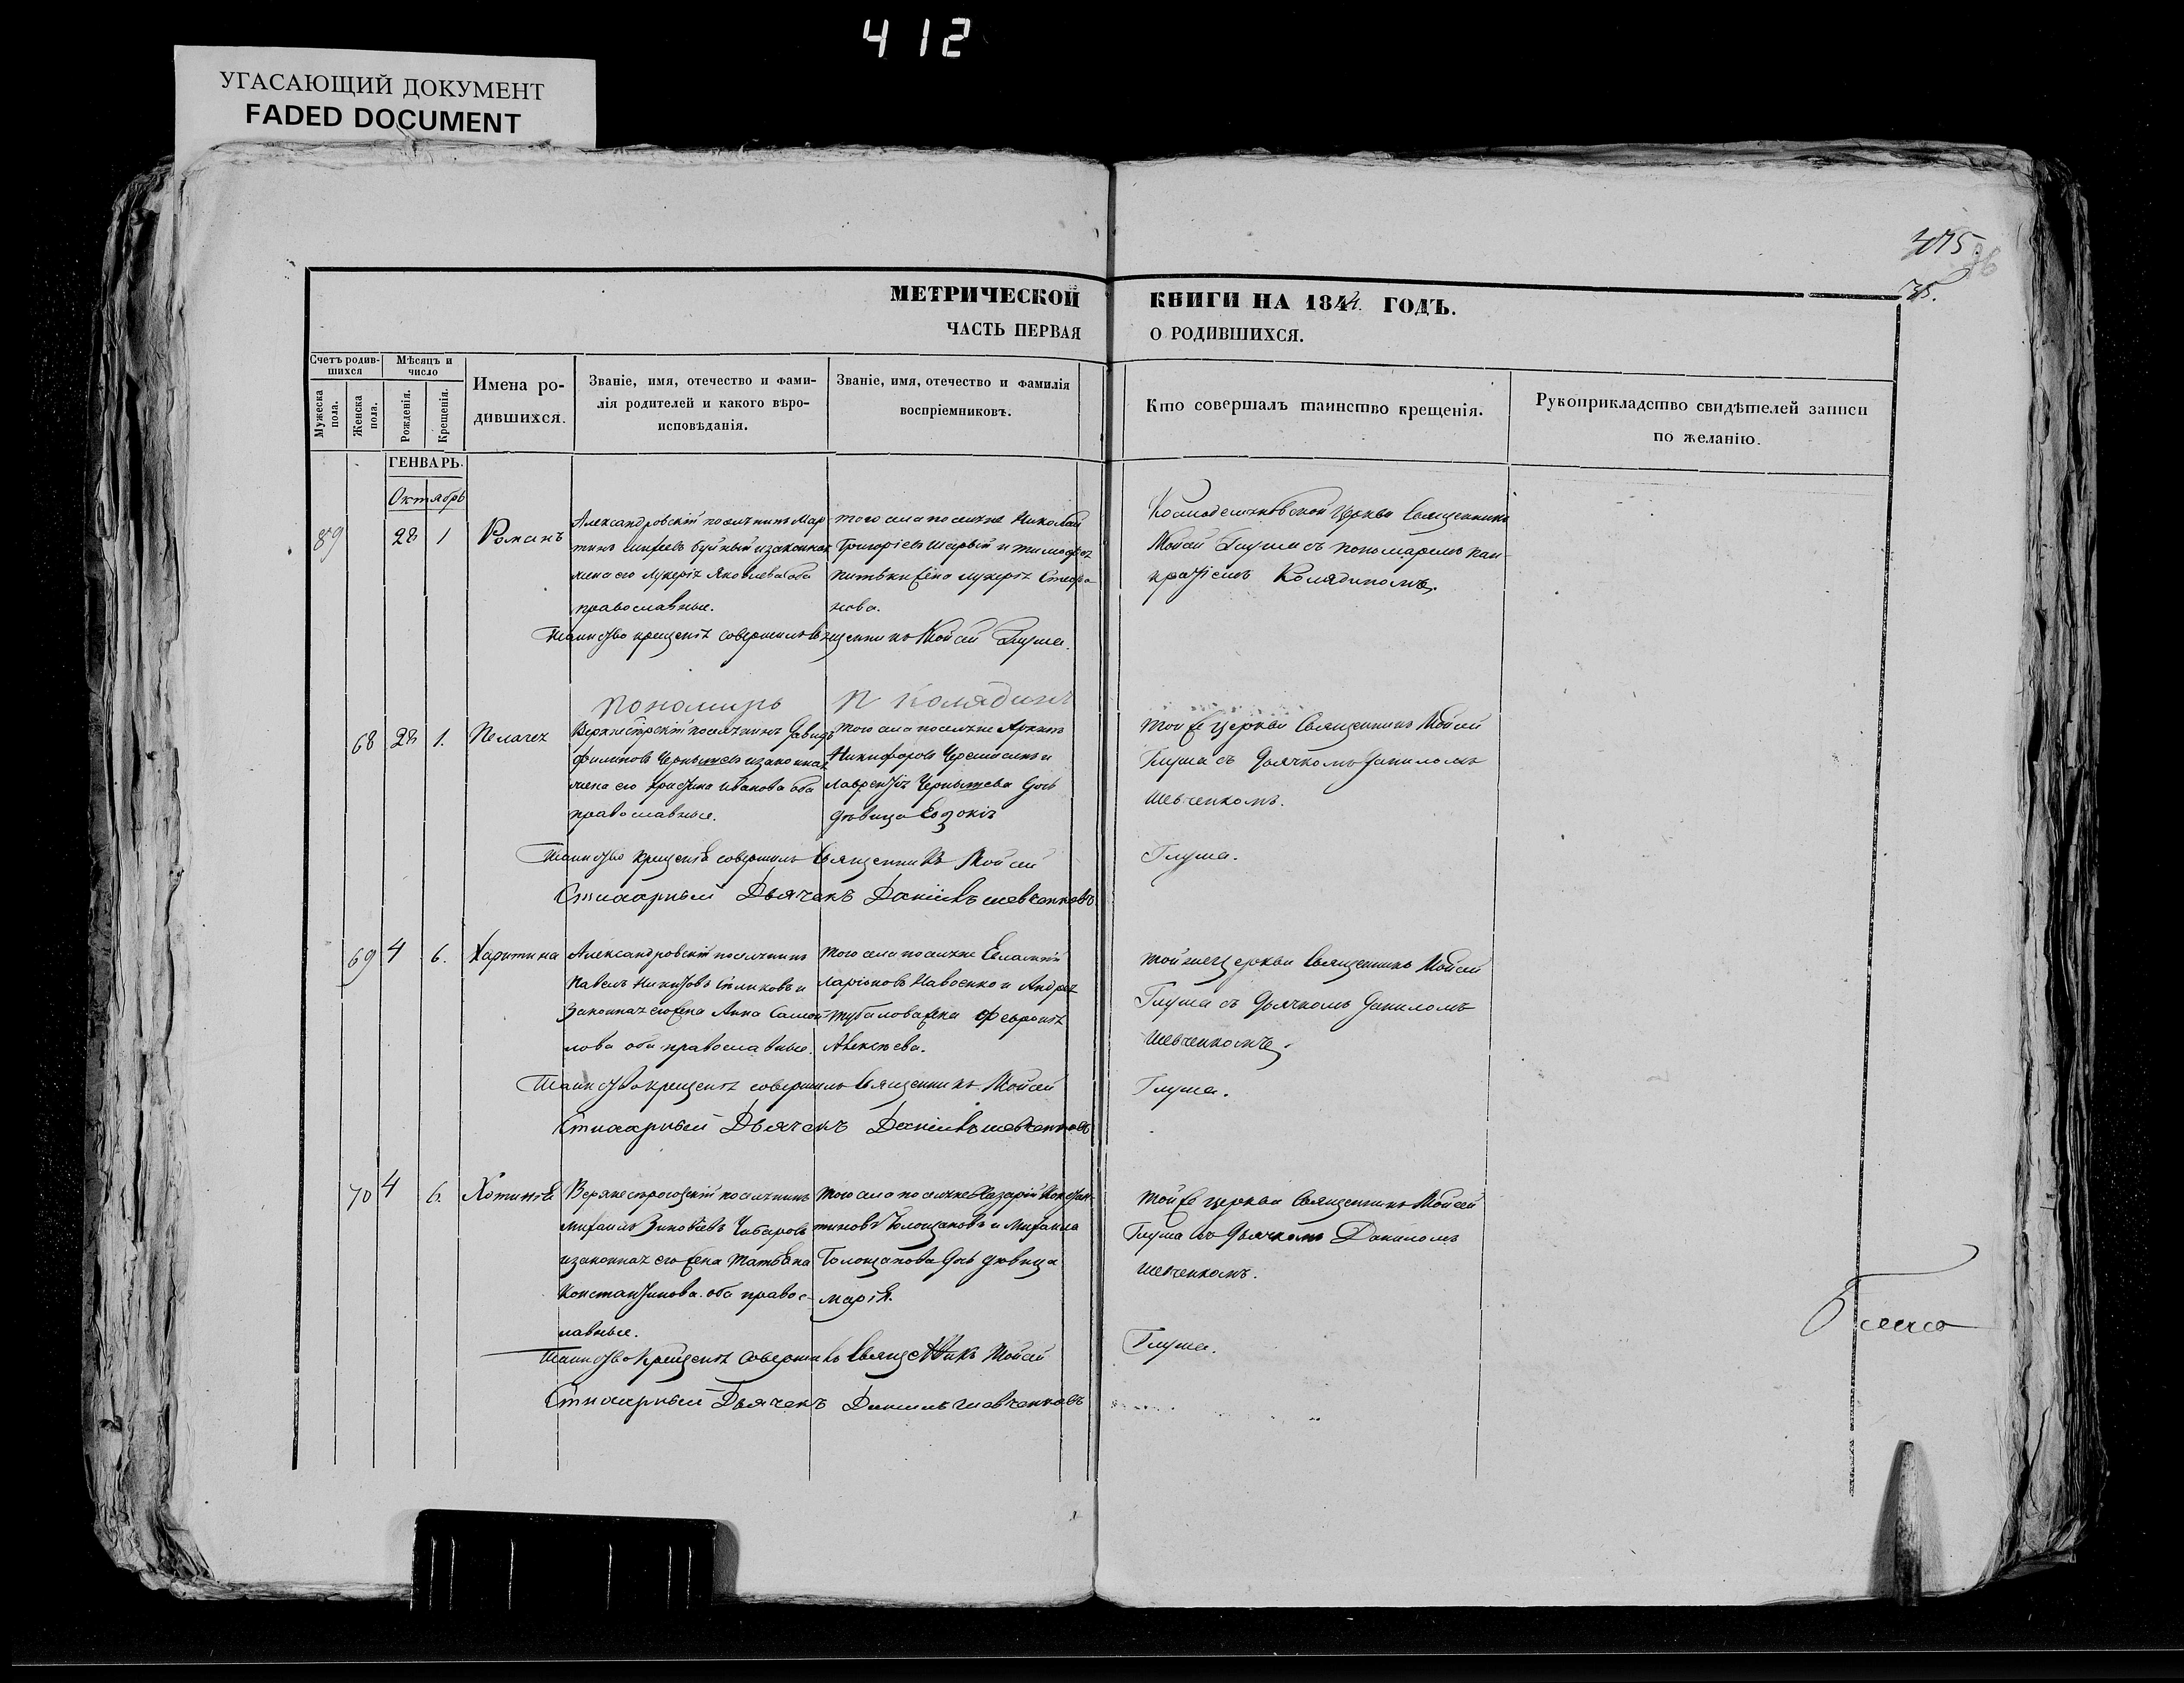 412
УГАСАЮЩИЙ ДОКУМЕНТ
FADED DOCUMENT
475
36
35.
МЕТРИЧЕСКОЙ КНИГИ НА 1844. ГОДЪ.
ЧАСТЬ ПЕРВАЯ О РОДИВШИХСЯ.
Счетъ родив-
шихся
Мужеска пола.
Женска пола.
Мѣсяцъ и
число
Рожденія.
Крещенія.
Имена ро-
дившихся.
Званіе, имя, отечество и фами-
лія родителей и какого вѣро-
исповѣданія.
Званіе, имя, отечество и фамилія
воспріемниковъ.
Кто совершалъ таинство крещенія.
Рукоприкладство свидѣтелей записи
по желанію.
ГЕНВАРЬ.
Октябрь
89 28 1 Романъ
Александровскій поселянинъ Мар-
тинъ Буйный и законная
жена его Лукерія Яковлева оба
православные.
того села поселяне Николай
Григоріевъ и Тимофея
жена Лукерія Стефа-
нова.
церкви Священникъ
Мойсей Глуша съ пономаремъ Пан-
кратіемъ Колядиномъ.
Таинство крещенія совершилъ Священникъ Мойсей Глуша.
Пономарь П Колядинъ
68 28 1. Пелагея
поселянинъ Давидъ
Филиповъ Чернышевъ и законная
жена его Христина Иванова оба
православные.
того села поселяне
Никифоровъ и
Лаврентія Чернышева дочь
дѣвица Евдокія
той же церкви Священникъ Мойсей
Глуша съ Дьячкомъ Даниломъ
Шевченкомъ.
Таинство крещенія совершилъ Священникъ Мойсей Глуша.
Стихарный Дьячекъ Даніилъ Шевченковъ
69 4 6. Харитина
Александровскій поселянинъ
Павелъ и
законная его жена Анна Самой-
лова оба православные.
того села поселяне Евлампій
Ларіоновъ Навоенко и Андрея
жена Февронія
Алексѣева.
той же церкви Священникъ Мойсей
Глуша съ Дьячкомъ Даниломъ
Шевченкомъ.
Таинство крещенія совершилъ Священникъ Мойсей Глуша.
Стихарный Дьячекъ Даніилъ Шевченковъ
70 4 6. Хотинія
поселянинъ
Михаилъ Зиновіевъ Чибаровъ
и законная его жена Татьяна
Константинова оба правос-
лавные.
того села поселяне Назарій Констан-
тиновъ Голощаповъ и Михаила
Голощапова дочь дѣвица
Марія.
той же церкви Священникъ Мойсей
Глуша съ Дьячкомъ Даниломъ
Шевченкомъ.
Таинство крещенія совершилъ Священникъ Мойсей Глуша.
Стихарный Дьячекъ Даніилъ Шевченковъ